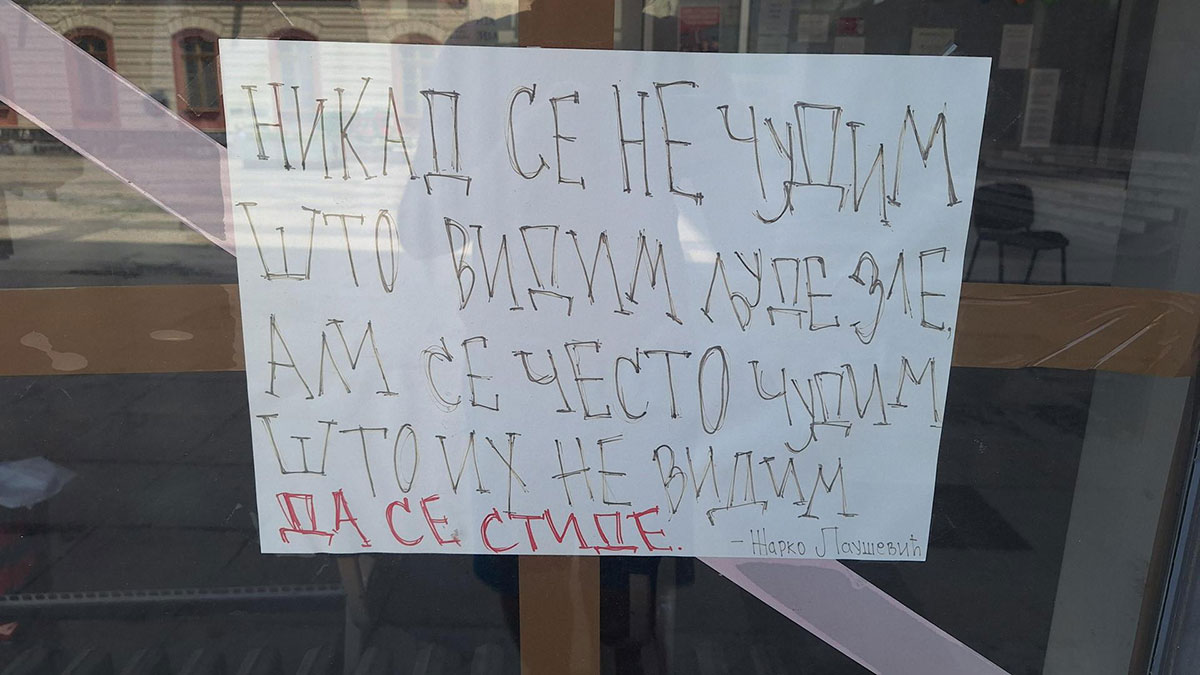 НИКАД СЕ НЕ ЧУДИМ
ШТО ВИДИМ ЉУДЕ ЗЛЕ.
АМ СЕ ЧЕСТО ЧУДИМ
ШТО ИХ НЕ ВИДИМ
ДА СЕ СТИДЕ.
- Жарко Лаушевић